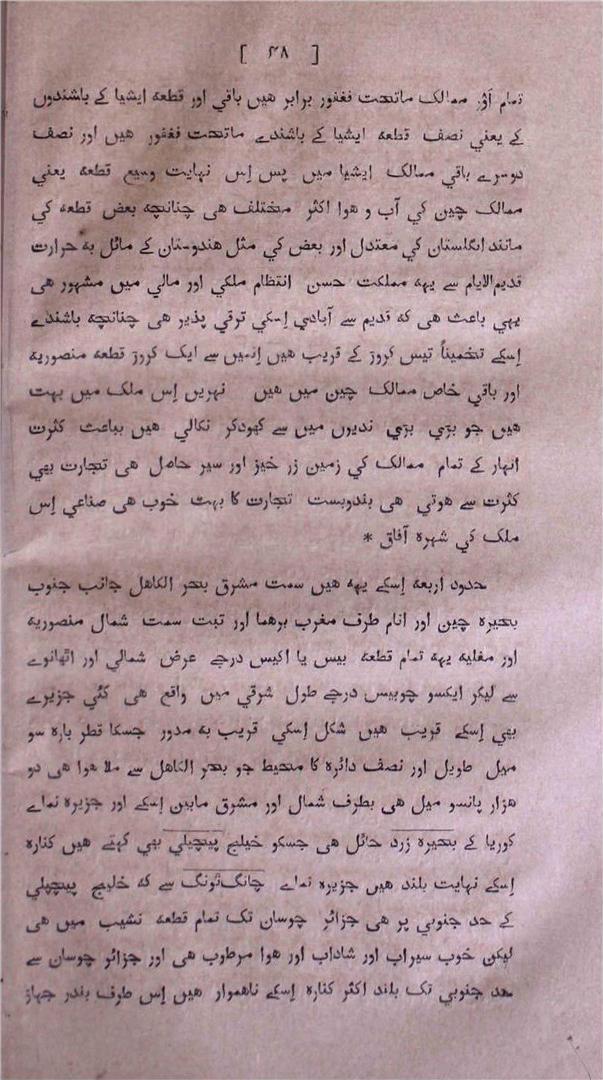 [ ۴۸ ]
تمام اَوْر ممالک ماتحت فغفور برابر هیں باقي اور قطعہ ایشیا کے باشندوں
کے یعني نصف قطعہ ایشیا کے باشندے ماتحت فغفور هیں اور نصف
دوسرے باقي ممالک ایشیا میں پس اِس نہایت وسیع قطعہ یعني
ممالک چین کي آب و هوا اکثر مختلف هی چنانچہ بعض قطعہ کي
مانند انگلستان کي معتدل اور بعض کي مثل هندوستان کے مائل بہ حرارت
قدیم‌الایام سے یہہ مملکت حسن انتظام ملکي اور مالي میں مشہور هی
یہي باعث هی کہ قدیم سے آبادي اِسکي ترقي پذیر هی چنانچہ باشندے
اِسکے تخمیناً تیس کروڑ کے قریب هیں اِنمیں سے ایک کروڑ قطعہ منصوریہ
اور باقي خاص ممالک چین میں هیں نہریں اِس ملک میں بہت
هیں جو بڑي بڑي ندیوں میں سے کهودکر نکالي هیں بباعث کثرت
انہار کے تمام ممالک کي زمین زر خیز اور سیر حاصل هی تجارت بهي
کثرت سے هوتي هی بندوبست تجارت کا بہت خوب هی صناعي اِس
ملک کي شہرہ آفاق *
حدود اربعہ اِسکے یہہ هیں سمت مشرق بحر الکاهل جانب جنوب
بحیرہ چین اور انام طرف مغرب برهما اور تبت سمت شمال منصوریہ
اور مغلیہ یہہ تمام قطعہ بیس یا اکیس درجے عرض شمالي اور اٹهانوے
سے لیکر ایکسو چوبیس درجے طول شرقي میں واقع هی کئي جزیرے
بهي اِسکے قریب هیں شکل اِسکي قریب بہ مدور جسکا قطر بارہ سو
میل طویل اور نصف دائرہ کا محیط جو بحر الکاهل سے ملا هوا هی دو
هزار پانسو میل هی بطرف شمال اور مشرق مابین اِسکے اور جزیرہ نماے
کوریا کے بحیرہ زرد حائل هی جسکو خلیج پیتچیلي بهي کہتے هیں کنارہ
اِسکے نہایت بلند هیں جزیرہ نماے چانگ‌تونگ سے کہ خلیج پیتچپلي
کے حد جنوبي پر هی جزائر چوسان تک تمام قطعہ نشیب میں هی
لیکن خوب سیراب اور شاداب اور هوا مرطوب هی اور جزائر چوسان سے
حد جنوبي تک بلند اکثر کنارہ اِسکے ناهموار هیں اِس طرف بندر جہاز